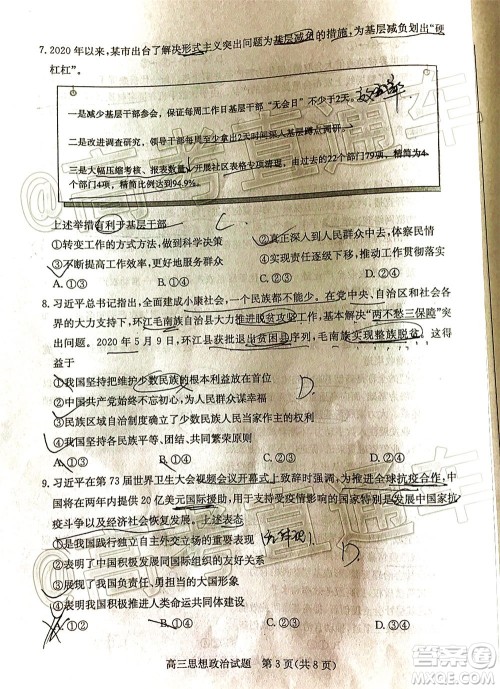 7. 2020年以来,某市出台了解决形式主义突出问题为基层减负的措施,为基层减负划出“硬
杠杠”。
一是减少基层干部参会,保证每周工作日基层干部“无会日”不少于2天。
二是改进调查研究,领导干部每周至少拿出2天时间深入基层蹲点调研。
三是大幅压缩考核、报表数量,开展社区表格专项清理,由过去的22个部门79项,精简为4
个部门4项,精简比例达到94.9%。
上述举措有利于基层干部 C
①转变工作的方式方法,做到科学决策 ②真正深入到人民群众中去,体察民情
③不断提高工作效率,更好地服务群众 ④实现责任逐级下移,推动工作贯彻落实
A. ①③ B. ①④ C. ②③ D. ②④
8. 习近平总书记指出,全面建成小康社会,一个民族都不能少。在党中央、自治区和社会各
界的大力支持下,环江毛南族自治县大力推进脱贫攻坚,基本解决“两不愁三保障”突
出问题。2020年5月9日,环江县获批退出贫困县序列,毛南族实现整族脱贫。这得
益于
①我国坚持把维护少数民族的根本利益放在首位
②中国共产党始终不忘初心,为人民群众谋幸福 D.
③民族区域自治制度保障了少数民族人民当家作主的权利
④我国坚持各民族平等、团结、共同繁荣原则
A. ①② B. ①③ C. ②③ D. ②④
9. 习近平在第73届世界卫生大会视频会议开幕式上致辞时强调,为推进全球抗疫合作,中
国将在两年内提供20亿美元国际援助,用于支持受疫情影响的国家特别是发展中国家抗
疫斗争以及经济社会恢复发展。上述表态
①是我国践行独立自主外交立场的重要表现
②表明我国积极发展同国际组织的友好关系 D.
③展现了我国负责任、勇担当的大国形象
④表明我国积极推进人类命运共同体建设
A. ①② B. ①③ C. ②④ D. ③④
高三思想政治试题 第3页(共8页)